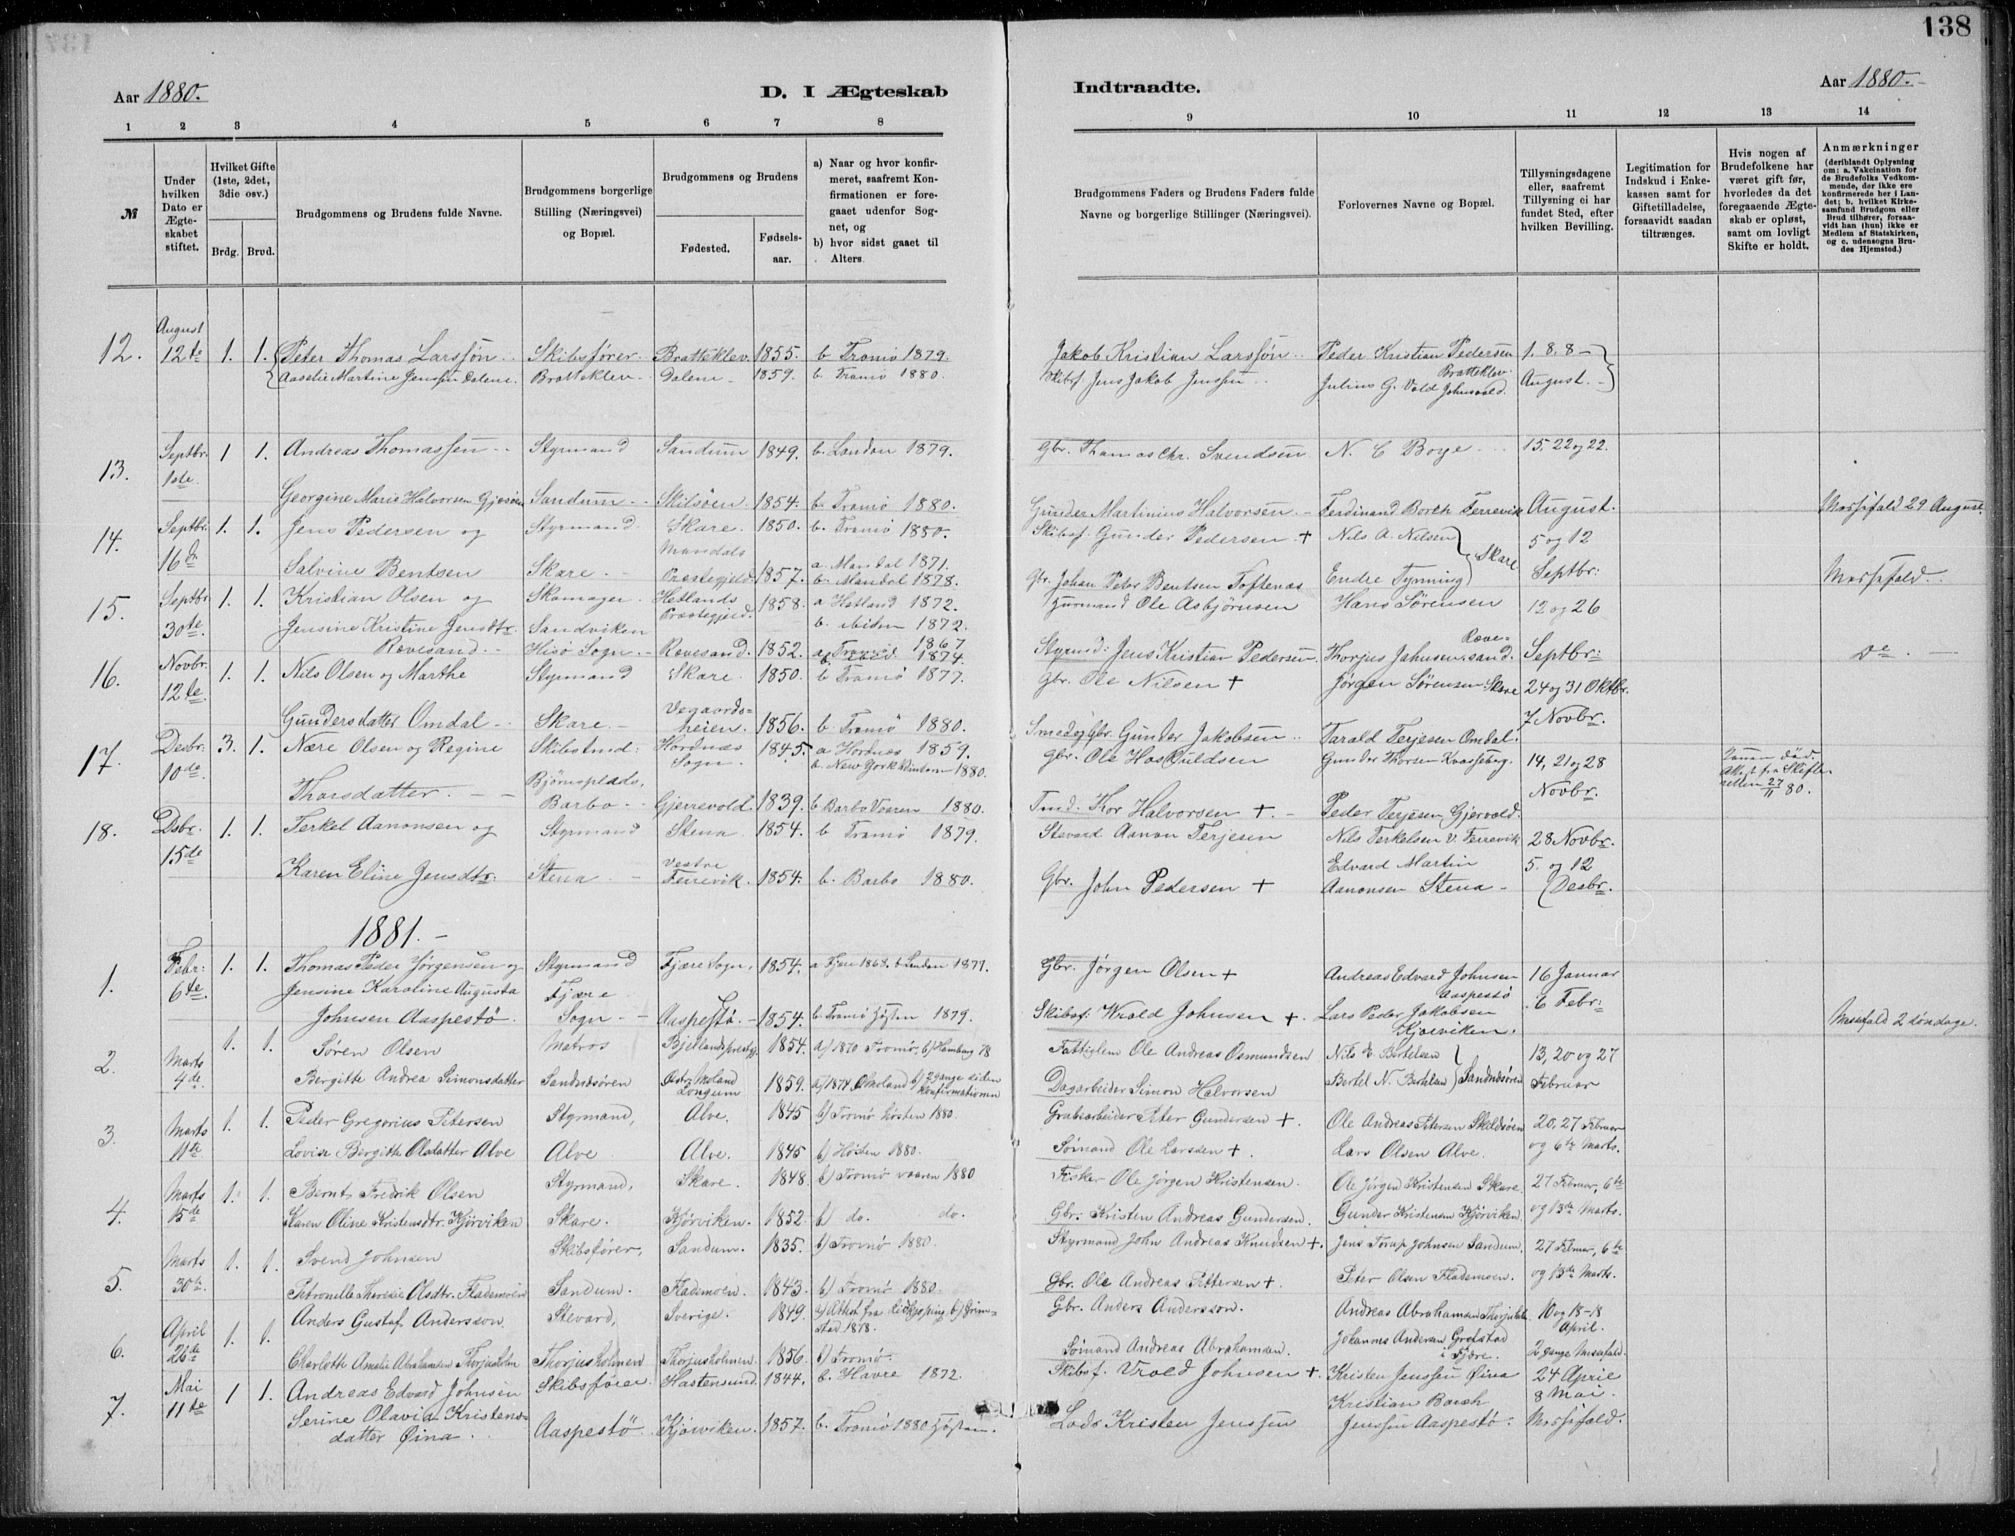 138
Aar 1880.
D. I Ægteskab
Indtraadte.
Aar 1880.
1 2 3 4 5 6 7 8 9 10 11 12 13 14
№
Under hvilken Dato er Ægteskabet stiftet.
Hvilket Gifte (1ste, 2det, 3die osv.)
Brdg. Brud.
Brudgommens og Brudens fulde Navne.
Brudgommens borgerlige Stilling (Næringsvei) og Bopæl.
Brudgommens og Brudens
Fødested.
Fødsels-aar.
a) Naar og hvor konfirmeret, saafremt Konfirmationen er foregaaet udenfor Sognet, og
b) hvor sidst gaaet til Alters.
Brudgommens Faders og Brudens Faders fulde Navne og borgerlige Stillinger (Næringsvei).
Forlovernes Navne og Bopæl.
Tillysningsdagene eller, saafremt Tillysning ei har fundet Sted, efter hvilken Bevilling.
Legitimation for Indskud i Enkekassen samt for Giftetilladelse, forsaavidt saadan tiltrænges.
Hvis nogen af Brudefolkene har været gift før, hvorledes da det foregaaende Ægteskab er opløst, samt om lovligt Skifte er holdt.
Anmærkninger
(deriblandt Oplysning om: a. Vakcination for de Brudefolks Vedkommende, der ikke ere konfirmerede her i Landet; b. hvilket Kirkesamfund Brudgom eller Brud tilhører, forsaavidt han (hun) ikke er Medlem af Statskirken, og c. udensogns Brudes Hjemsted.)
12. August 12te 1. 1. Peter Thomas Larssøn Skibsfører Bratteklev 1855. b. Tromø 1879. Jakob Kristian Larssøn Peder Kristian Pedersen Bratteklev 1. 8. 8
Aaselie Martine Jenssen Dalene. Bratteklev Dalene 1859. b. Tromø 1880. Skibsf. Jens Jakob Jenssen Julius G. Vold August.
13. Septbr. 1ste 1 1. Andreas Thomassen Styrmand Sandum 1849. b. London 1879. Gbr. Thomas Chr. Svendsen N. C Boye 15. 22 og 22.
Georgine Marie Halvorsen Sandum Skilsøen. 1854. b. Tromø 1880. Gunder Martinius Halvorsen Ferdinand Borth Ferrevik August. 29 August.
14. Septbr. 16de 1. 1. Jens Pedersen og Styrmand Skare. 1850. b. Tromø 1880. Skibsf. Gunder Pedersen + Nils A. Nilsen 5 og 12
Salvine Bentsen Skare. Mandals Præstegjeld 1857. a Mandal 1871. b. Mandal 1878. Gbr. Johan Peder Bentsen Toftenes Endre Tynning Skare Septbr:
15. Septbr. 30te 1. 1. Kristian Olsen og Skomager Hetlands Præstegjeld. 1858. a Hetland 1872. b. ibiden 1872. Ole Asbjørnsen Hans Sørensen 12 og 26
Jensine Kristine Jensdtr. Rævesand. Sandviken Hisø Sogn. Rævesand. 1852. a Tromø 1867 1874. Styrmd: Jens Kristian Pedersen Thorjus Johnsen Rævesand. Septbr: do.
16. Novbr. 12te 1. 1. Nils Olsen og Marthe Styrmand Skare. 1850. b Tromø 1877. Gbr. Ole Nilsen + Jørgen Sørensen Skare 24 og 31 Oktbr.
Gundersdatter Omdal Skare. Vegaardsheien. 1856. b Tromø 1880. Gunder Jakobsen Tarald Terjesen Omdal. 7 Novbr.
17. Desbr. 10de 3. 1. Nære Olsen og Regine Skibstmd: Hordnæs Sogn. 1845. a Hordnæs 1859. b. New York Vinteren 1880. Gbr. Ole Gunder Thorsen 14, 21 og 28
Thorsdatter. Bjørnsplads, Barbo Gjerrevold 1839. b Barbo Vaaren 1880. Tmd. Halvorsen +. Peder Terjesen Gjervold. Novbr. 27/11 80.
18. Desbr. 15de 1. 1. Terkel Aanonsen og Styrmand Stena 1854. b Tromø 1879. Stevard Aanon Terjesen Nils Terkelsen V. Ferrevik 28 Novbr.
Karen Eline Jensdtr. Stena Vestre Ferrevik. 1854. b. Barbo 1880. Gbr. John Pedersen + Edvard Martin Aanonsen Stena 5. og 12 Desbr.
1881.
1. Febr: 6te. 1. 1. Thomas Peder Jørgensen og Styrmand Fjære Sogn. 1854. a Fjære 1868. b London 1877. Gbr. Jørgen Olsen + Andreas Edvard Johnsen Aaspestø 16 Januar
Jensine Karoline Augusta Johnsen Aaspestø. Fjære Sogn Aaspestø. 1854. b Tromø Høsten 1879. Skibsf. Wrold Johnsen +. Lars Peder Jakobsen Kjørviken. 6 Febr: 2 søndage.
2. Marts 4de. 1. 1. Søren Olsen Matros 1854. a) 1870 Tromø, b) Hamburg 78 Fattiglem Ole Andreas Osmundsen Nils Bertelsen 13, 20 og 27
Bergitte Andrea Simonsdatter Sandnæsøren Østr. Moland Longum 1859. a) 1874, Ømoland b) 2 gange siden konfirmationen Dagarbeider Simon Halvorsen Bertel N. Bertelsen Sandnæsøren Februar
3. Marts 11te 1. 1. Peder Gregorius Petersen Styrmand, Alve. 1845 b) Tromø høsten 1880. Grubearbeider Peter Gundersen +. Ole Andreas Petersen Skilsøen 20, 27 Februar
Lovise Bergitte Olsdatter Alve Alve Alve. 1845 b) Høsten 1880. Sømand Ole Larssen +. Lars Olsen Alve. og 6te Marts.
4. Marts 15de 1. 1. Bernt Fredrik Olsen Styrmand, Skare. 1848. b) Tromø vaaren 1880 Fisker Ole Jørgen Kristensen. Ole Jørgen Kristensen Skare. 27 Februar, 6te
Karen Oline Kristensdtr. Kjørviken Skare. Kjørviken. 1852. b) do. do. Gbr. Kristen Andreas Gundersen. Gunder Kristensen Kjørviken. og 13de Marts.
5. Marts 30te 1. 1. Svend Johnsen Skibsfører, Sandum. 1835. b) Tromø 1880. Styrmand John Andreas Knudsen +. Jens Torup Johnsen Sandum. 27 Februar, 6te
Petronelle Therese Olsdtr. Flademoen Sandum. Flademoen. 1843 b) Tromø 1880. Gbr. Ole Andreas Pettersen +. Peter Olsen Flademoen. og 13de Marts.
6. April 26de 1. 1. Anders Gustaf Andersson Stevard, Sverige. 1849. a) Attest fra Lidkjøping b) Grimstad 1878. Gbr. Anders Andersson. Andreas Abrahamsen Thorjusholm 10 og 18-18 April.
Charlotte Amalie Abrahamsen Thorjusholm Thorjusholmen Thorjusholmen 1856. b) Tromø. Sømand Andreas Abrahamsen. Johannes Andersen Grefstad i Fjære. 2 gange Messefald.
7. Mai 11te 1 1. Andreas Edvard Johnsen Skibsfører Hastensund. 1844. b. Havre 1872. Skibsf. Vrold Johnsen + Kristen Jenssen Øina 24 April
Serine Olavia Kristensdatter Øina. Aaspestø Kjørviken. 1857. b. Tromø 1880 Høsten. Lods Kristen Jenssen Kristian Borth Jenssen Aaspestø. 8 Mai. Messefald.